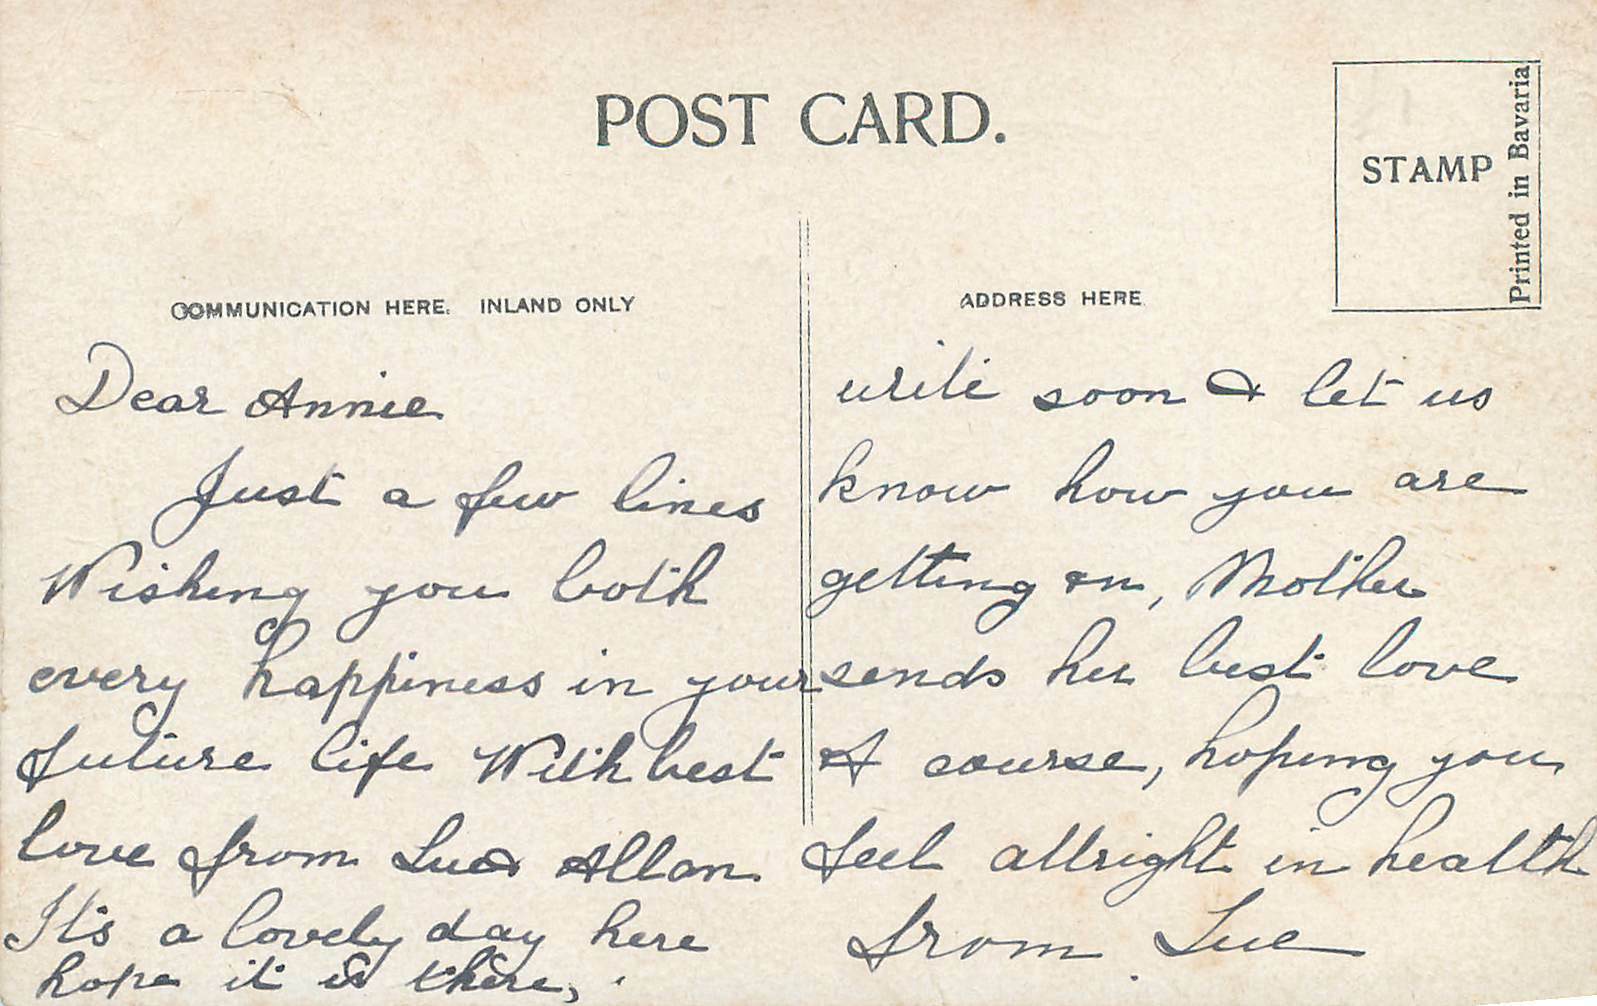 POST CARD.
STAMP
Printed in Bavaria
COMMUNICATION HERE. INLAND ONLY
Dear Annie
Just a few lines
Wishing you both
every happiness in your
future life With best
love from Lu & Allan
It's a lovely day here
hope it is there,
ADDRESS HERE
write soon & let us
know how you are
getting on, Mother
sends her best love
& course, hoping you
feel allright in health
from Lue